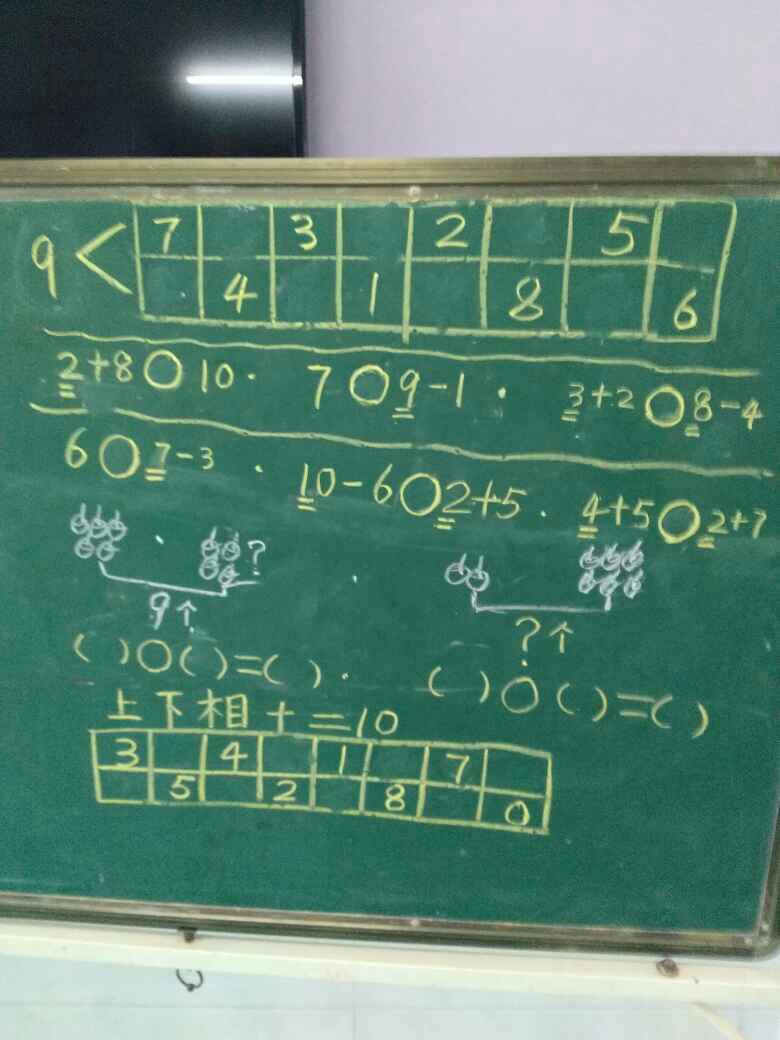 9 < 7 3 2 5
4 1 8 6
2+8○10· 7○9-1· 3+2○8-4
6○7-3· 10-6○2+5· 4+5○2+7
?
9个 ?个
( )○( )=( )· ( )○( )=( )
上下相十=10
3 4 1 7
5 2 8 0